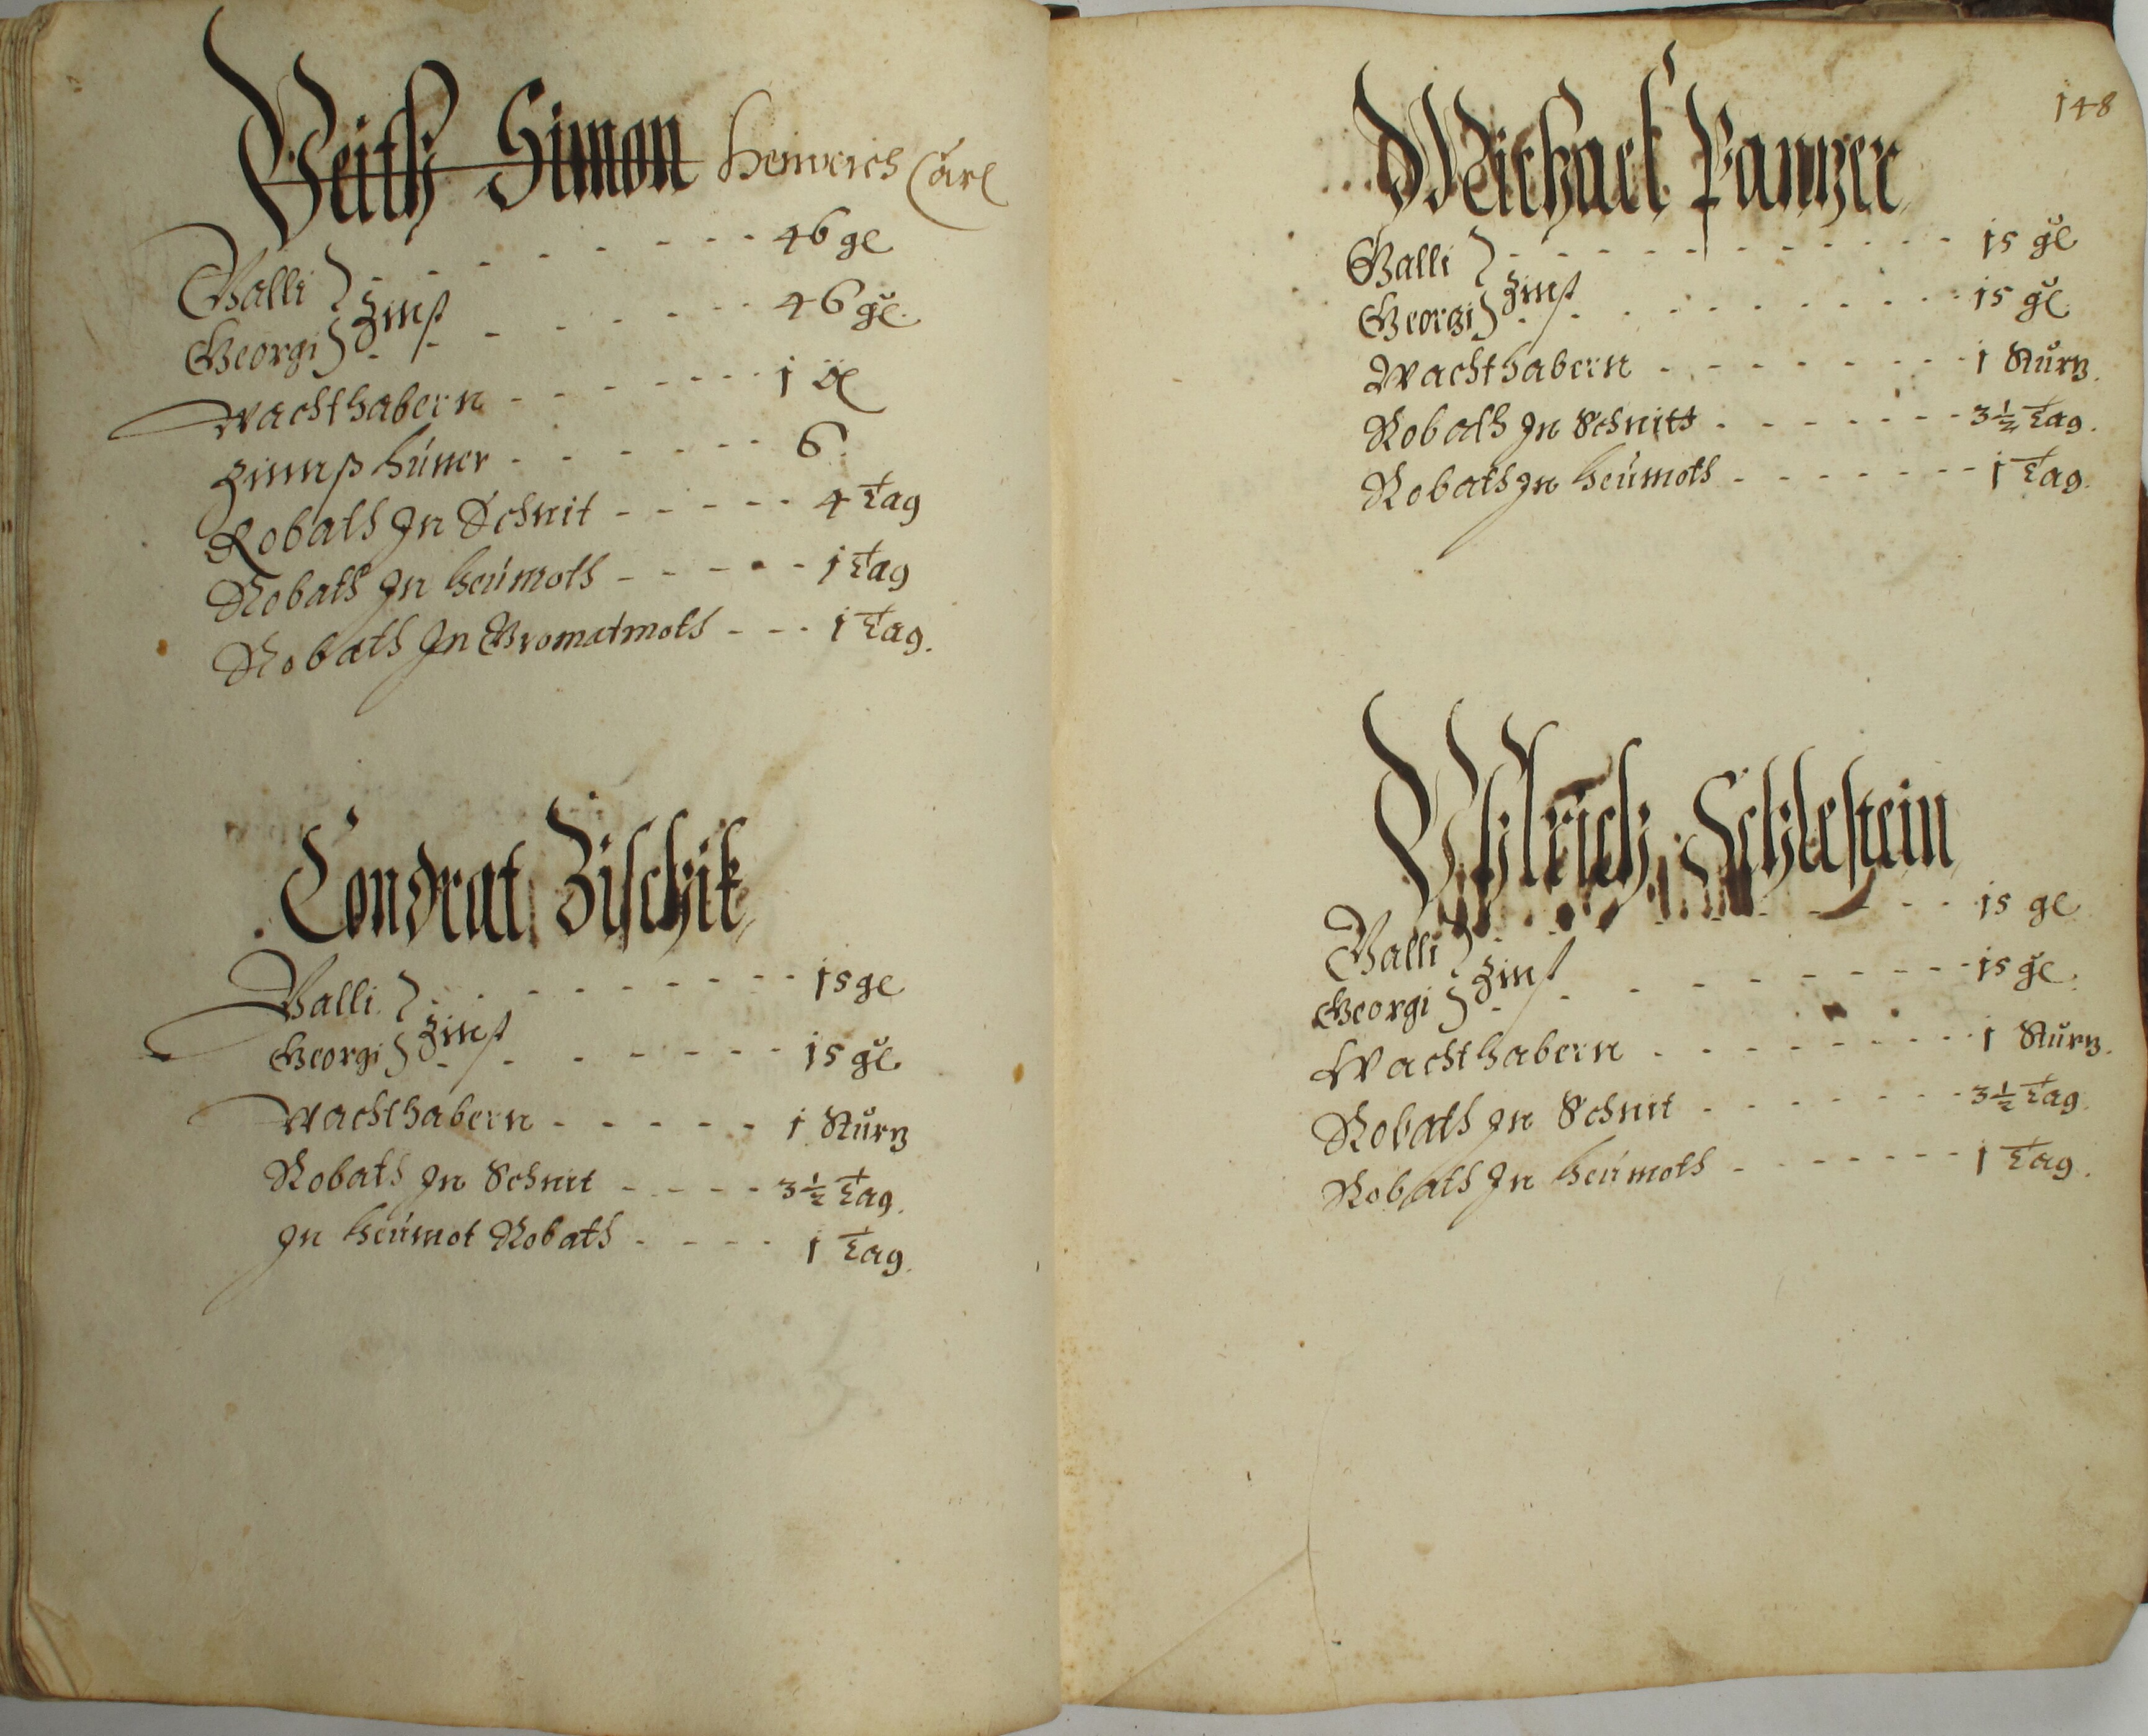 Veith Simon Heinrich Carl
Galli } Zinß - - - - - - - - 46 gl
Georgi } - - - - - - - 46 gl.
Wachthabern - - - - - - - 1
Zinnß húner - - - - - - 6.
Robath In Schnit - - - - - 4 Tag
Robath In heúmoth - - - - - 1 Tag
Robath In Gromatmoth - - - 1 Tag.
Condrat Zischik
Galli } Zinß - - - - - - - - 15 gl
Georgi } - - - - - - - - 15 gl
Wachthabern - - - - - 1 Sturz
Robath In Schnit - - - - 3½ Tag.
In heúmot Robath - - - - 1 Tag.
148
Michael Panzer
Galli } Zinß - - - - - - - - - - 15 gl
Georgi } - - - - - - - - - 15 gl.
Wachthabern - - - - - - - 1 Sturz.
Robath In Schnitt - - - - - - - 3½ Tag.
Robath In heúmoth - - - - - - - 1 Tag.
Vhlrich Schlestein
Galli } Zinß - - - - - - - - - 15 gl
Georgi } - - - - - - - - - 15 gl.
Wachthabern - - - - - - - - - 1 Sturz.
Robath In Schnit - - - - - - - 3½ Tag.
Robath In heúmoth - - - - - - - 1 Tag.